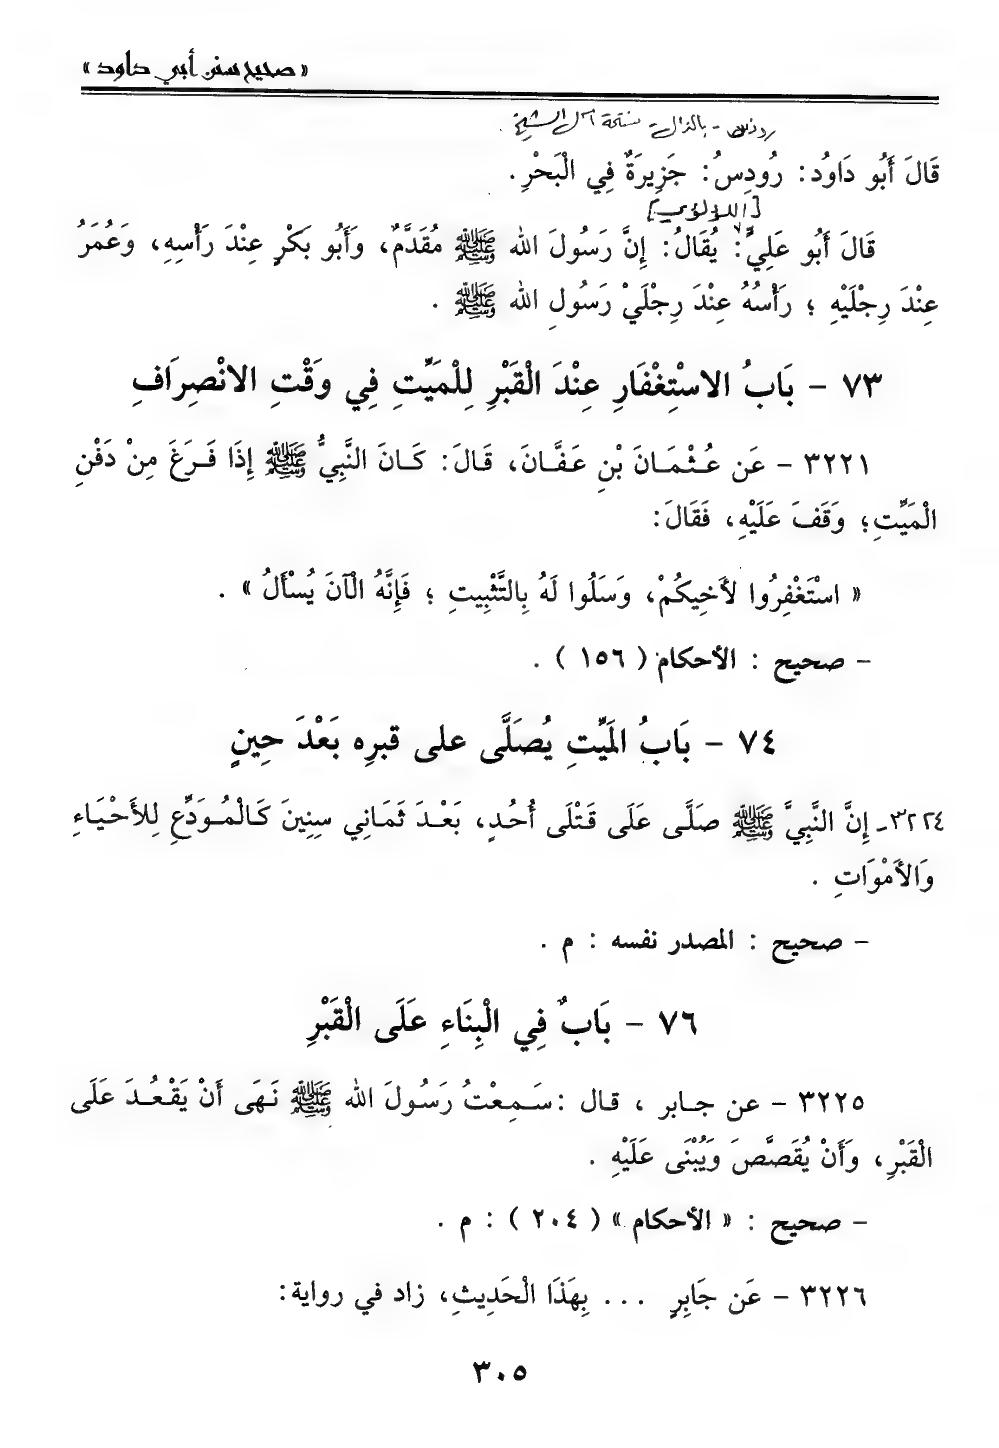 « صحيح سنن أبي داود »
روذس - بالذال - نسخة آل الشيخ .
قَالَ أَبُو دَاوُد: رُودِسُ: جَزِيرَةٌ فِي الْبَحْرِ .
[اللؤلؤي]
قَالَ أَبُو عَلِيٍّ: يُقَالُ: إِنَّ رَسُولَ الله ﷺ مُقَدَّمٌ، وَأَبُو بَكْرٍ عِنْدَ رَأْسِهِ، وَعُمَرُ
عِنْدَ رِجْلَيْهِ ؛ رَأْسُهُ عِنْدَ رِجْلَيْ رَسُولِ الله ﷺ .
٧٣ – بَابُ الاسْتِغْفَارِ عِنْدَ الْقَبْرِ لِلْمَيِّتِ فِي وَقْتِ الانْصِرَافِ
٣٢٢١ – عَن عُثْمَانَ بْنِ عَفَّانَ، قَالَ: كَانَ النَّبِيُّ ﷺ إِذَا فَرَغَ مِنْ دَفْنِ
الْمَيِّتِ؛ وَقَفَ عَلَيْهِ، فَقَالَ:
« اسْتَغْفِرُوا لأَخِيكُمْ، وَسَلُوا لَهُ بِالتَّثْبِيتِ ؛ فَإِنَّهُ الْآنَ يُسْأَلُ » .
– صحيح : الأحكام ( ١٥٦ ) .
٧٤ – بَابُ المَيِّتِ يُصَلَّى على قبرِه بَعْدَ حِينٍ
٣٢٢٤- إِنَّ النَّبِيَّ ﷺ صَلَّى عَلَى قَتْلَى أُحُدٍ، بَعْدَ ثَمَانِي سِنِينَ كَالْمُوَدِّعِ لِلأَحْيَاءِ
وَالأَمْوَاتِ .
– صحيح : المصدر نفسه : م .
٧٦ – بَابٌ فِي الْبِنَاءِ عَلَى الْقَبْرِ
٣٢٢٥ – عن جابر ، قال :سَمِعْتُ رَسُولَ الله ﷺ نَهَى أَنْ يَقْعُدَ عَلَى
الْقَبْرِ، وَأَنْ يُقَصَّصَ وَيُبْنَى عَلَيْهِ .
– صحيح : « الأحكام » ( ٢٠٤ ) : م .
٣٢٢٦ – عَن جَابِرٍ ... بِهَذَا الْحَدِيثِ، زاد في رواية:
٣٠٥